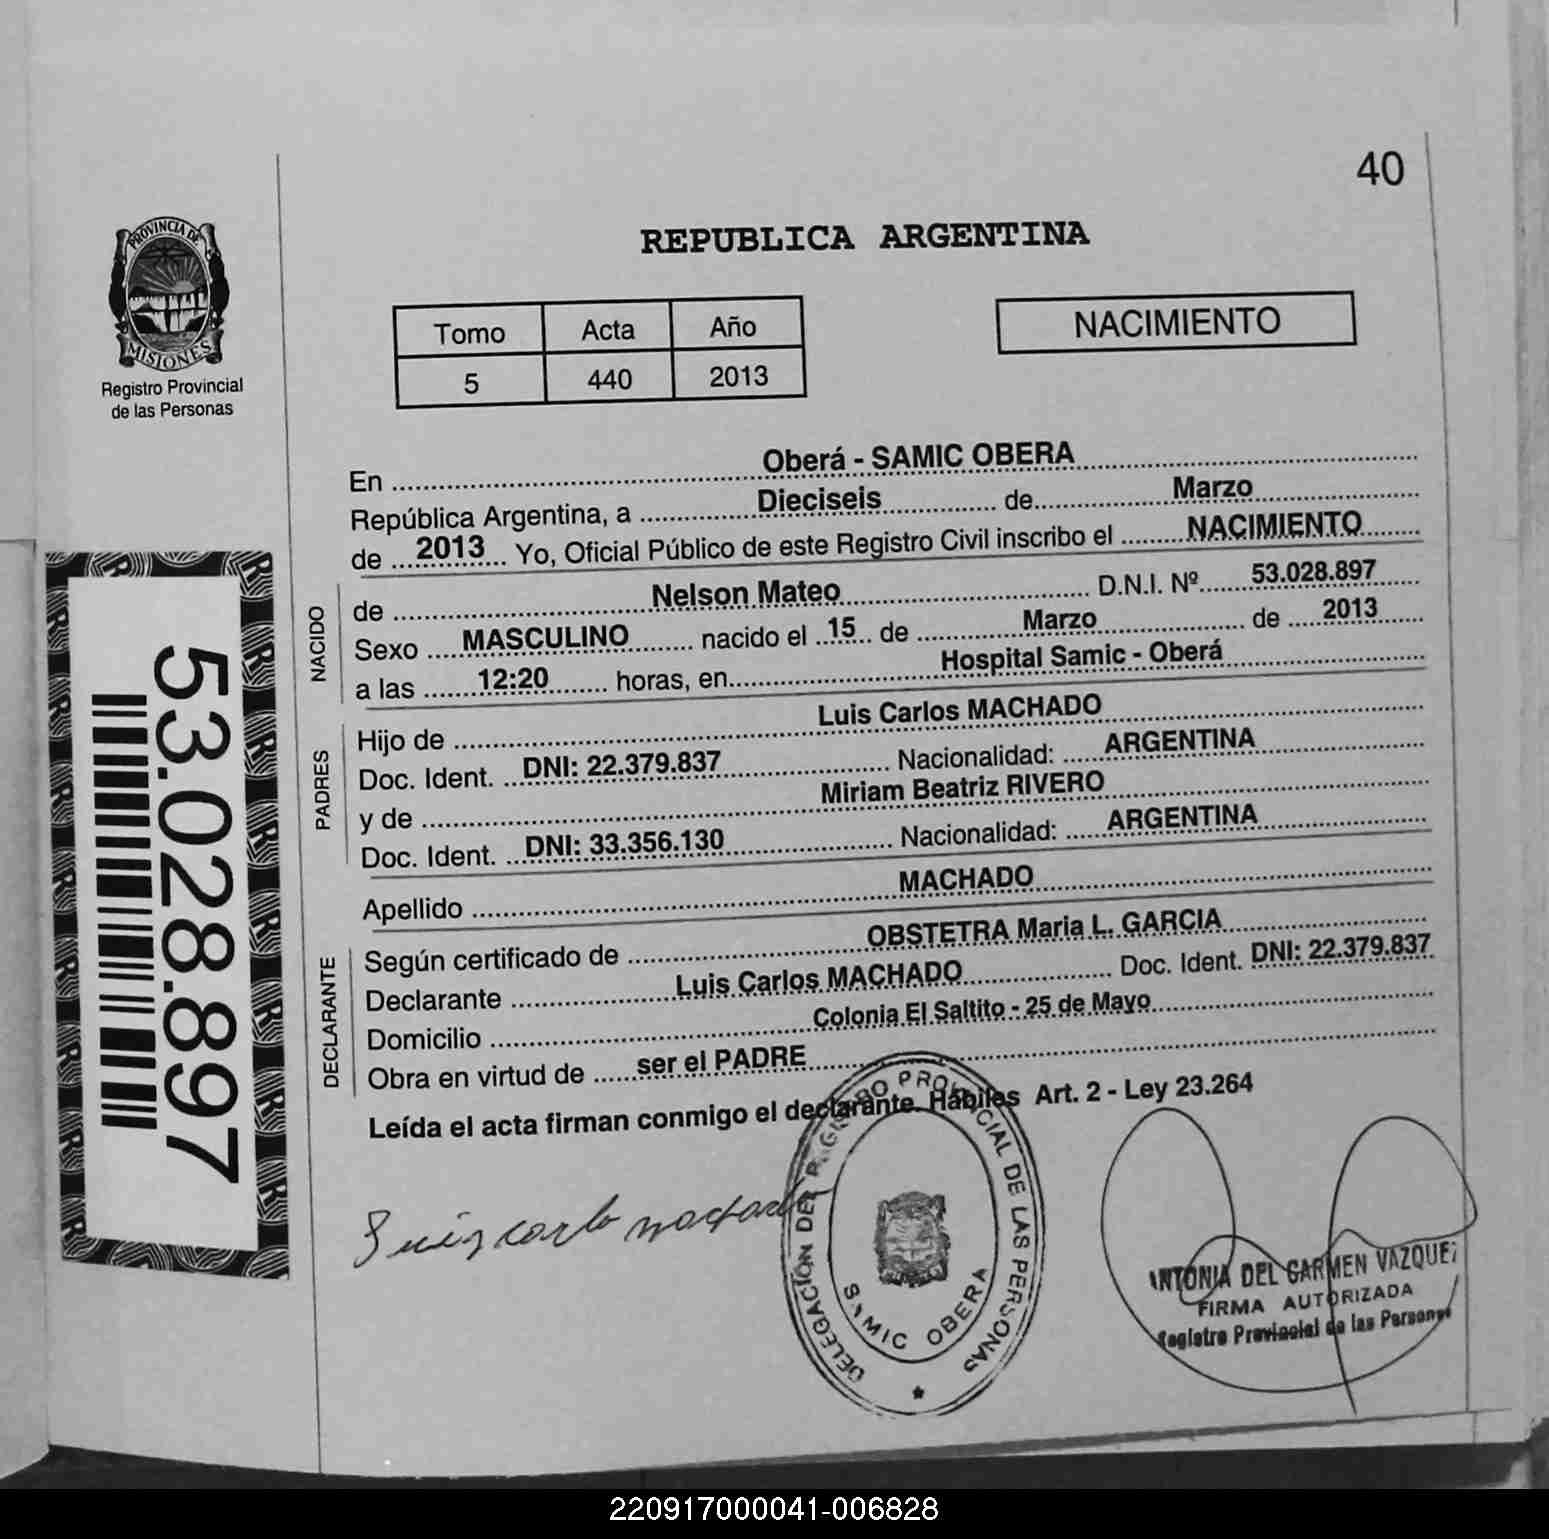 40
PROVINCIA DE
MISIONES
Registro Provincial
de las Personas
REPUBLICA ARGENTINA
Tomo Acta Año
5 440 2013
NACIMIENTO
En Oberá - SAMIC OBERA
República Argentina, a Dieciseis de Marzo
de 2013 Yo, Oficial Público de este Registro Civil inscribo el NACIMIENTO
NACIDO
de Nelson Mateo D.N.I. Nº 53.028.897
Sexo MASCULINO nacido el 15 de Marzo de 2013
a las 12:20 horas, en Hospital Samic - Oberá
PADRES
Hijo de Luis Carlos MACHADO
Doc. Ident. DNI: 22.379.837 Nacionalidad: ARGENTINA
y de Miriam Beatriz RIVERO
Doc. Ident. DNI: 33.356.130 Nacionalidad: ARGENTINA
Apellido MACHADO
DECLARANTE
Según certificado de OBSTETRA Maria L. GARCIA
Declarante Luis Carlos MACHADO Doc. Ident. DNI: 22.379.837
Domicilio Colonia El Saltito - 25 de Mayo
Obra en virtud de ser el PADRE
Leída el acta firman conmigo el declarante. Hábiles Art. 2 - Ley 23.264
53.028.897
DELEGACIÓN DEL REGISTRO PROVINCIAL DE LAS PERSONAS
SAMIC OBERA
ANTONIA DEL CARMEN VAZQUEZ
FIRMA AUTORIZADA
Registro Provincial de las Personas
220917000041-006828